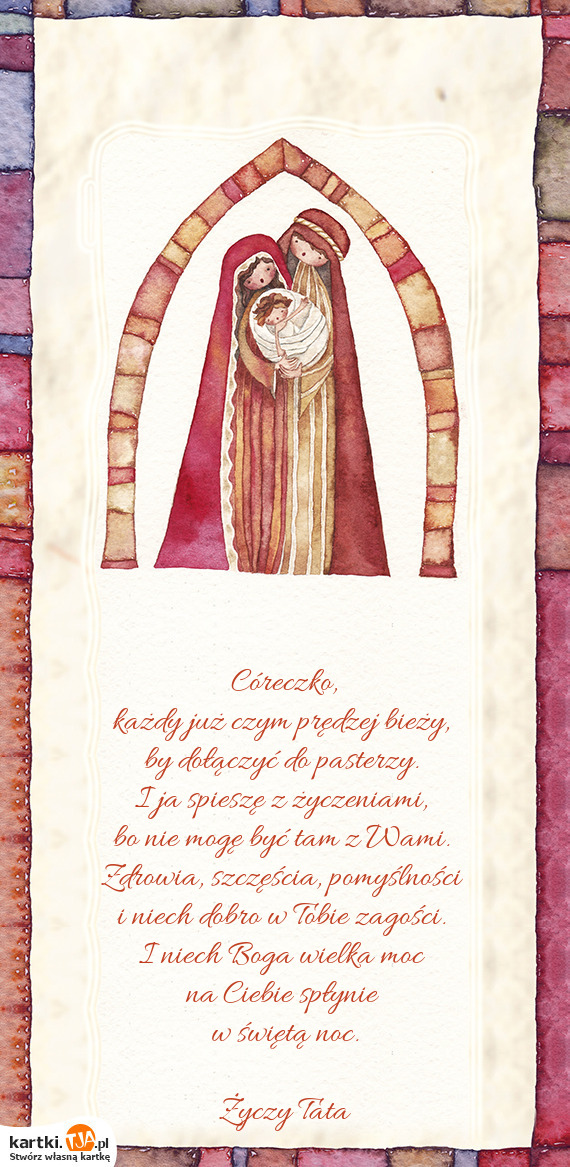 Córeczko,
każdy już czym prędzej bieży,
by dołączyć do pasterzy.
I ja spieszę z życzeniami,
bo nie mogę być tam z Wami.
Zdrowia, szczęścia, pomyślności
i niech dobro w Tobie zagości.
I niech Boga wielka moc
na Ciebie spłynie
w świętą noc.
Życzy Tata
kartki.TJA.pl
Stwórz własną kartkę